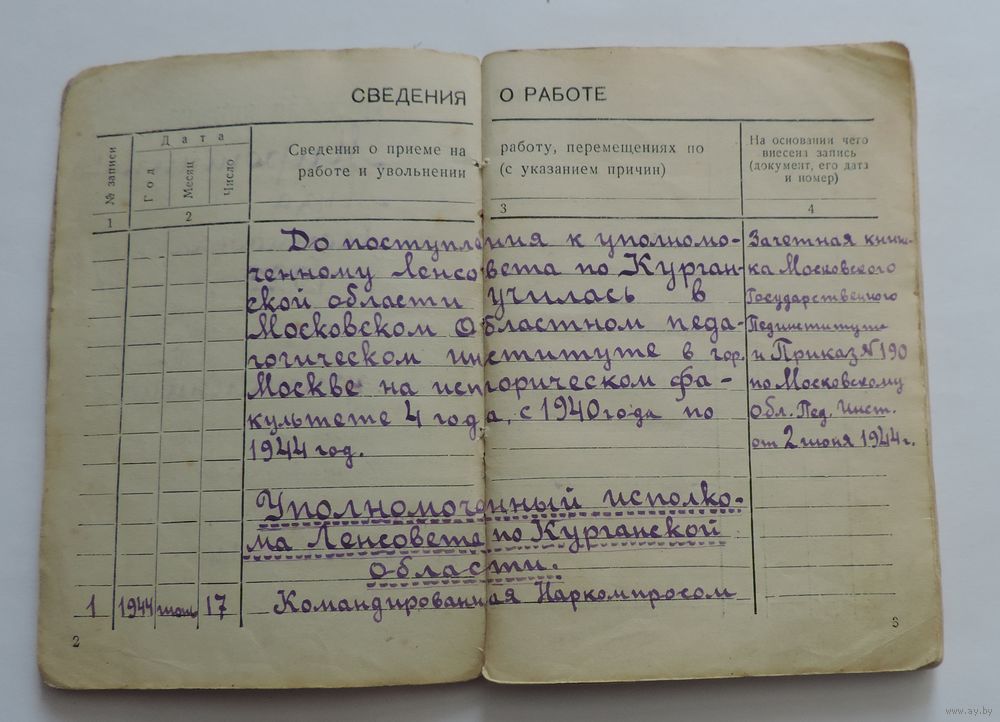 СВЕДЕНИЯ О РАБОТЕ
№ записи
Дата
Год
Месяц
Число
Сведения о приеме на работу, перемещениях по
работе и увольнении (с указанием причин)
На основании чего
внесена запись
(документ, его дата
и номер)
1 2 3 4
До поступления к уполномо-
ченному Ленсовета по Курган-
ской области училась в
Московском Областном педа-
гогическом институте в гор.
Москве на историческом фа-
культете 4 года, с 1940 года по
1944 год.
Зачетная книж-
ка Московского
Государственного
Пединститута
и Приказ №190
по Московскому
Обл. Пед. Инст.
от 2 июня 1944 г.
Уполномоченный исполко-
ма Ленсовета по Курганской
области.
1 1944 17 Командированная Наркомпросом
2
3
www.ay.by